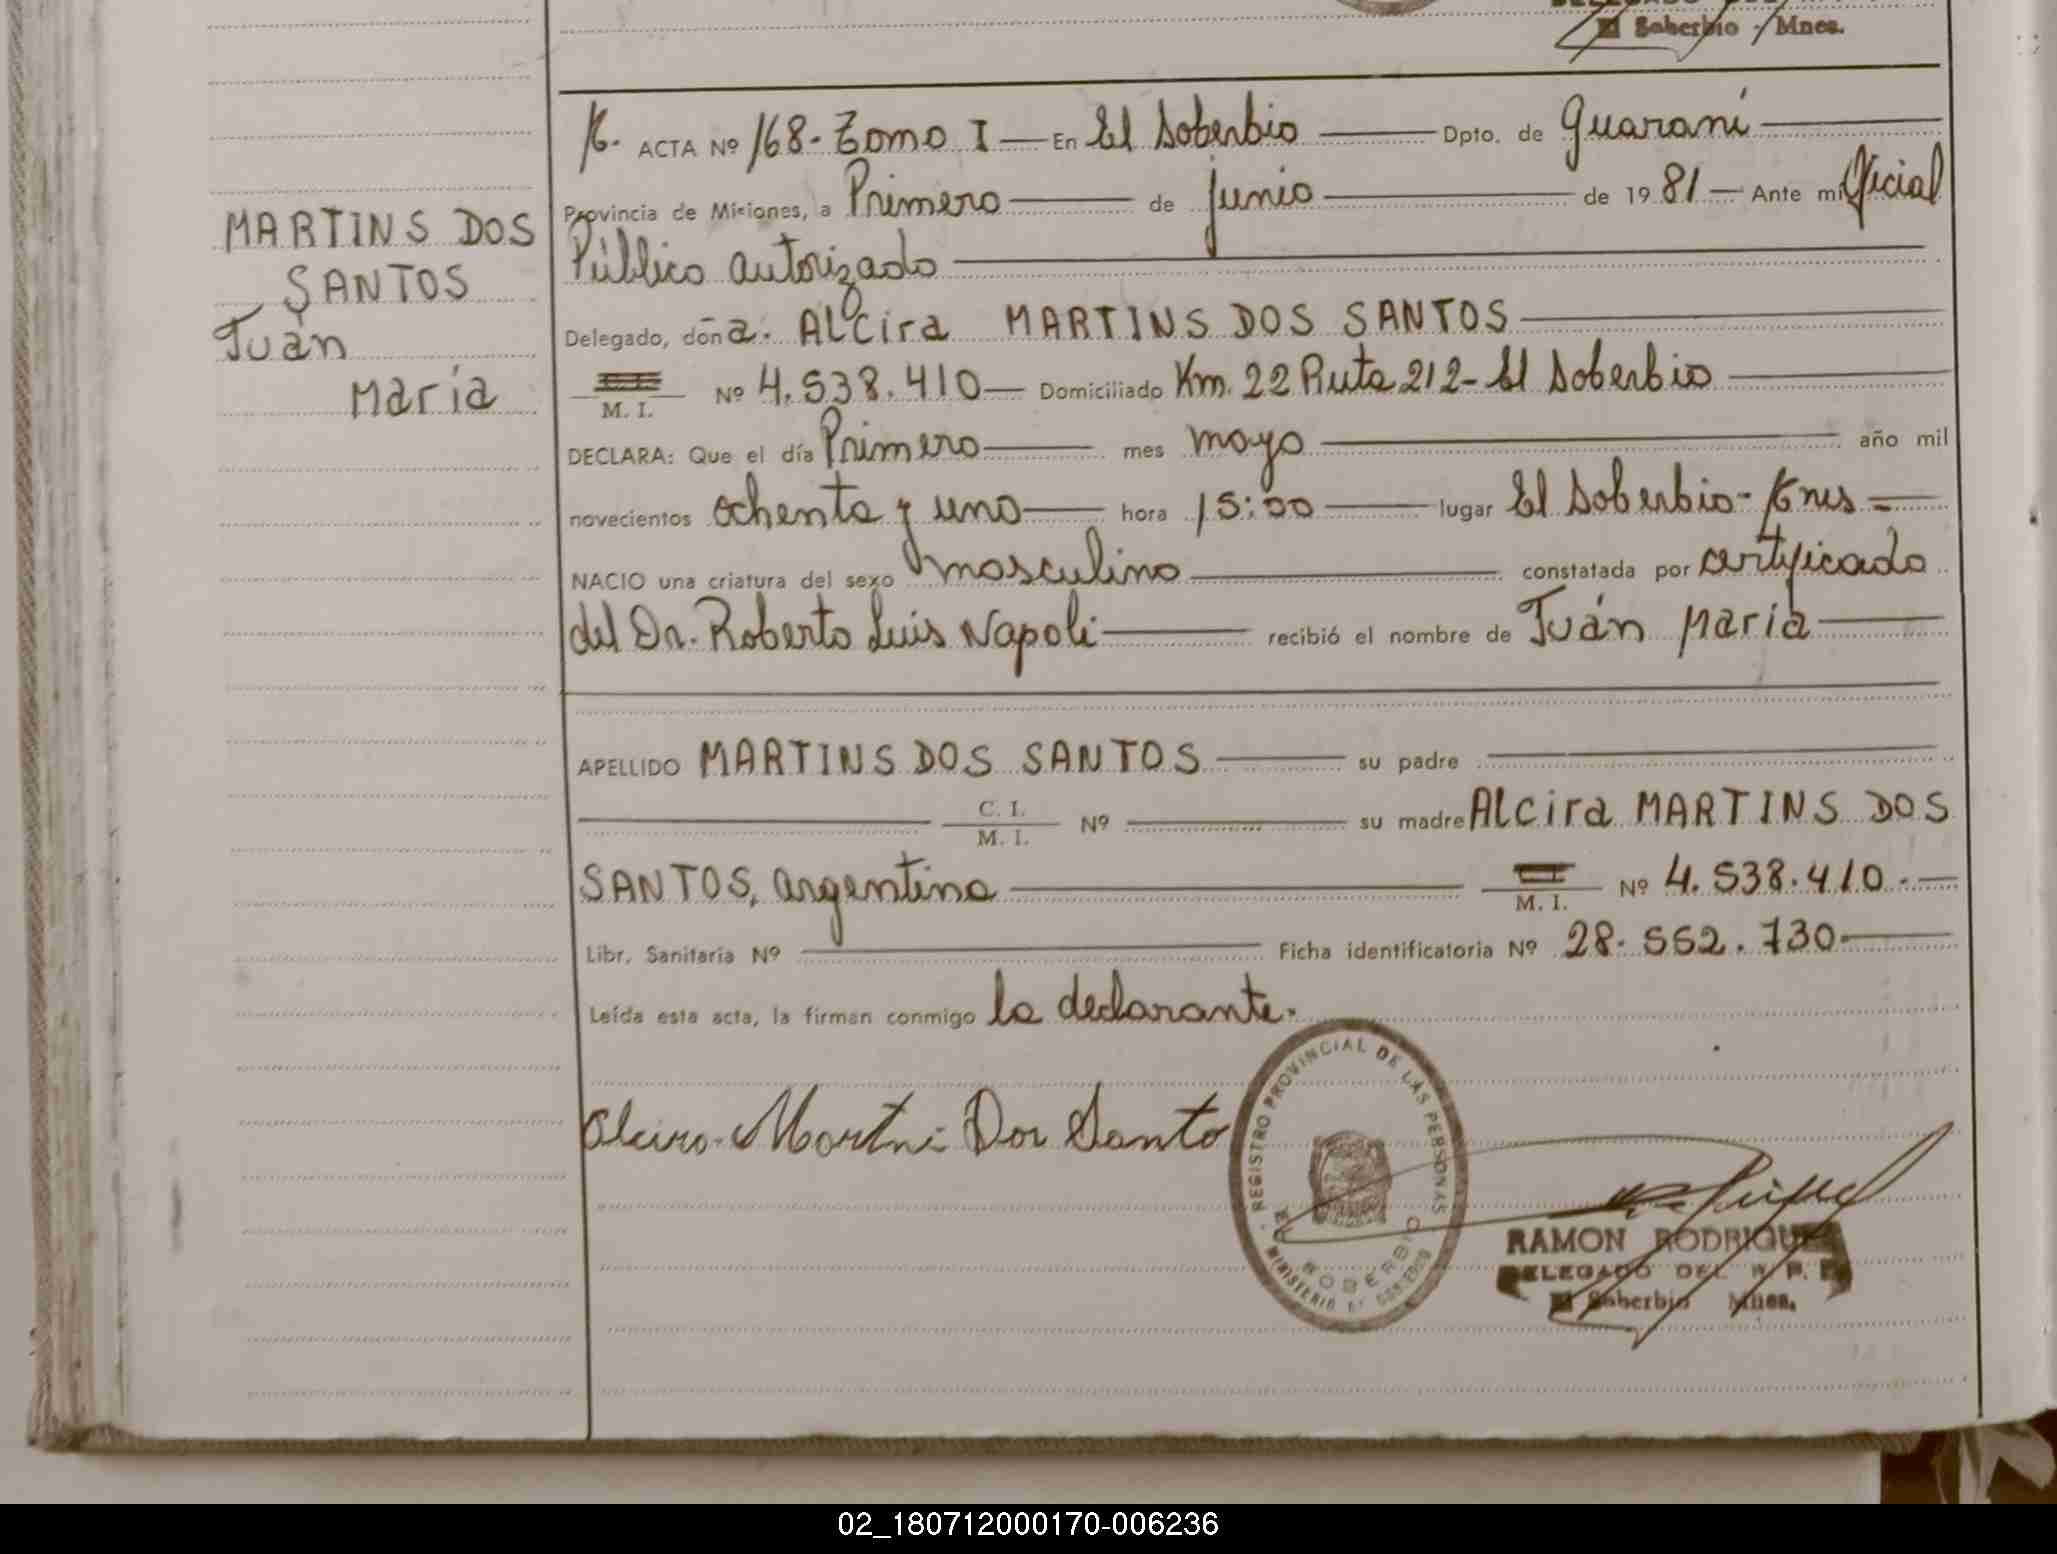 Soberbio - Mnes.
ACTA Nº 168- Tomo I — En El Soberbio — Dpto. de Guaraní
Provincia de Misiones, a Primero — de junio — de 1981 — Ante mí Oficial
Público autorizado
Delegado, doña. ALcira MARTINS DOS SANTOS
M. I. Nº 4.538.410 — Domiciliado Km. 22 Ruta 212- El Soberbio
DECLARA: Que el día Primero — mes mayo — año mil
novecientos ochenta y uno — hora 15:00 — lugar El Soberbio-
NACIO una criatura del sexo masculino — constatada por certificado
del Dr. Roberto Luis Napoli — recibió el nombre de Juán María
MARTINS DOS
SANTOS
Juán
María
APELLIDO MARTINS DOS SANTOS — su padre
C. I.
M. I. Nº — su madre ALcira MARTINS DOS
SANTOS, argentina — M. I. Nº 4.538.410.-
Libr. Sanitaria Nº — Ficha identificatoria Nº 28.552.730
Leída esta acta, la firman conmigo la declarante.
Alcira Martni Dos Santo
REGISTRO PROVINCIAL DE LAS PERSONAS
MINISTERIO DE GOBIERNO
EL SOBERBIO
RAMON RODRIGUEZ
DELEGADO DEL
Soberbio Mnes.
02_180712000170-006236